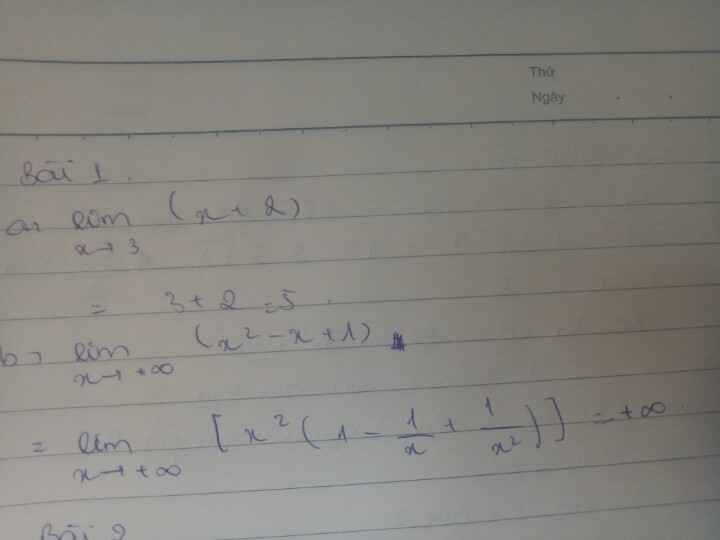 Thứ
Ngày
Bài 1.
a, lim (x + 2)
x → 3
= 3 + 2 = 5.
b, lim (x² - x + 1)
x → +∞
= lim [x² (1 - 1/x + 1/x²)] = +∞
x → +∞
Bài 2